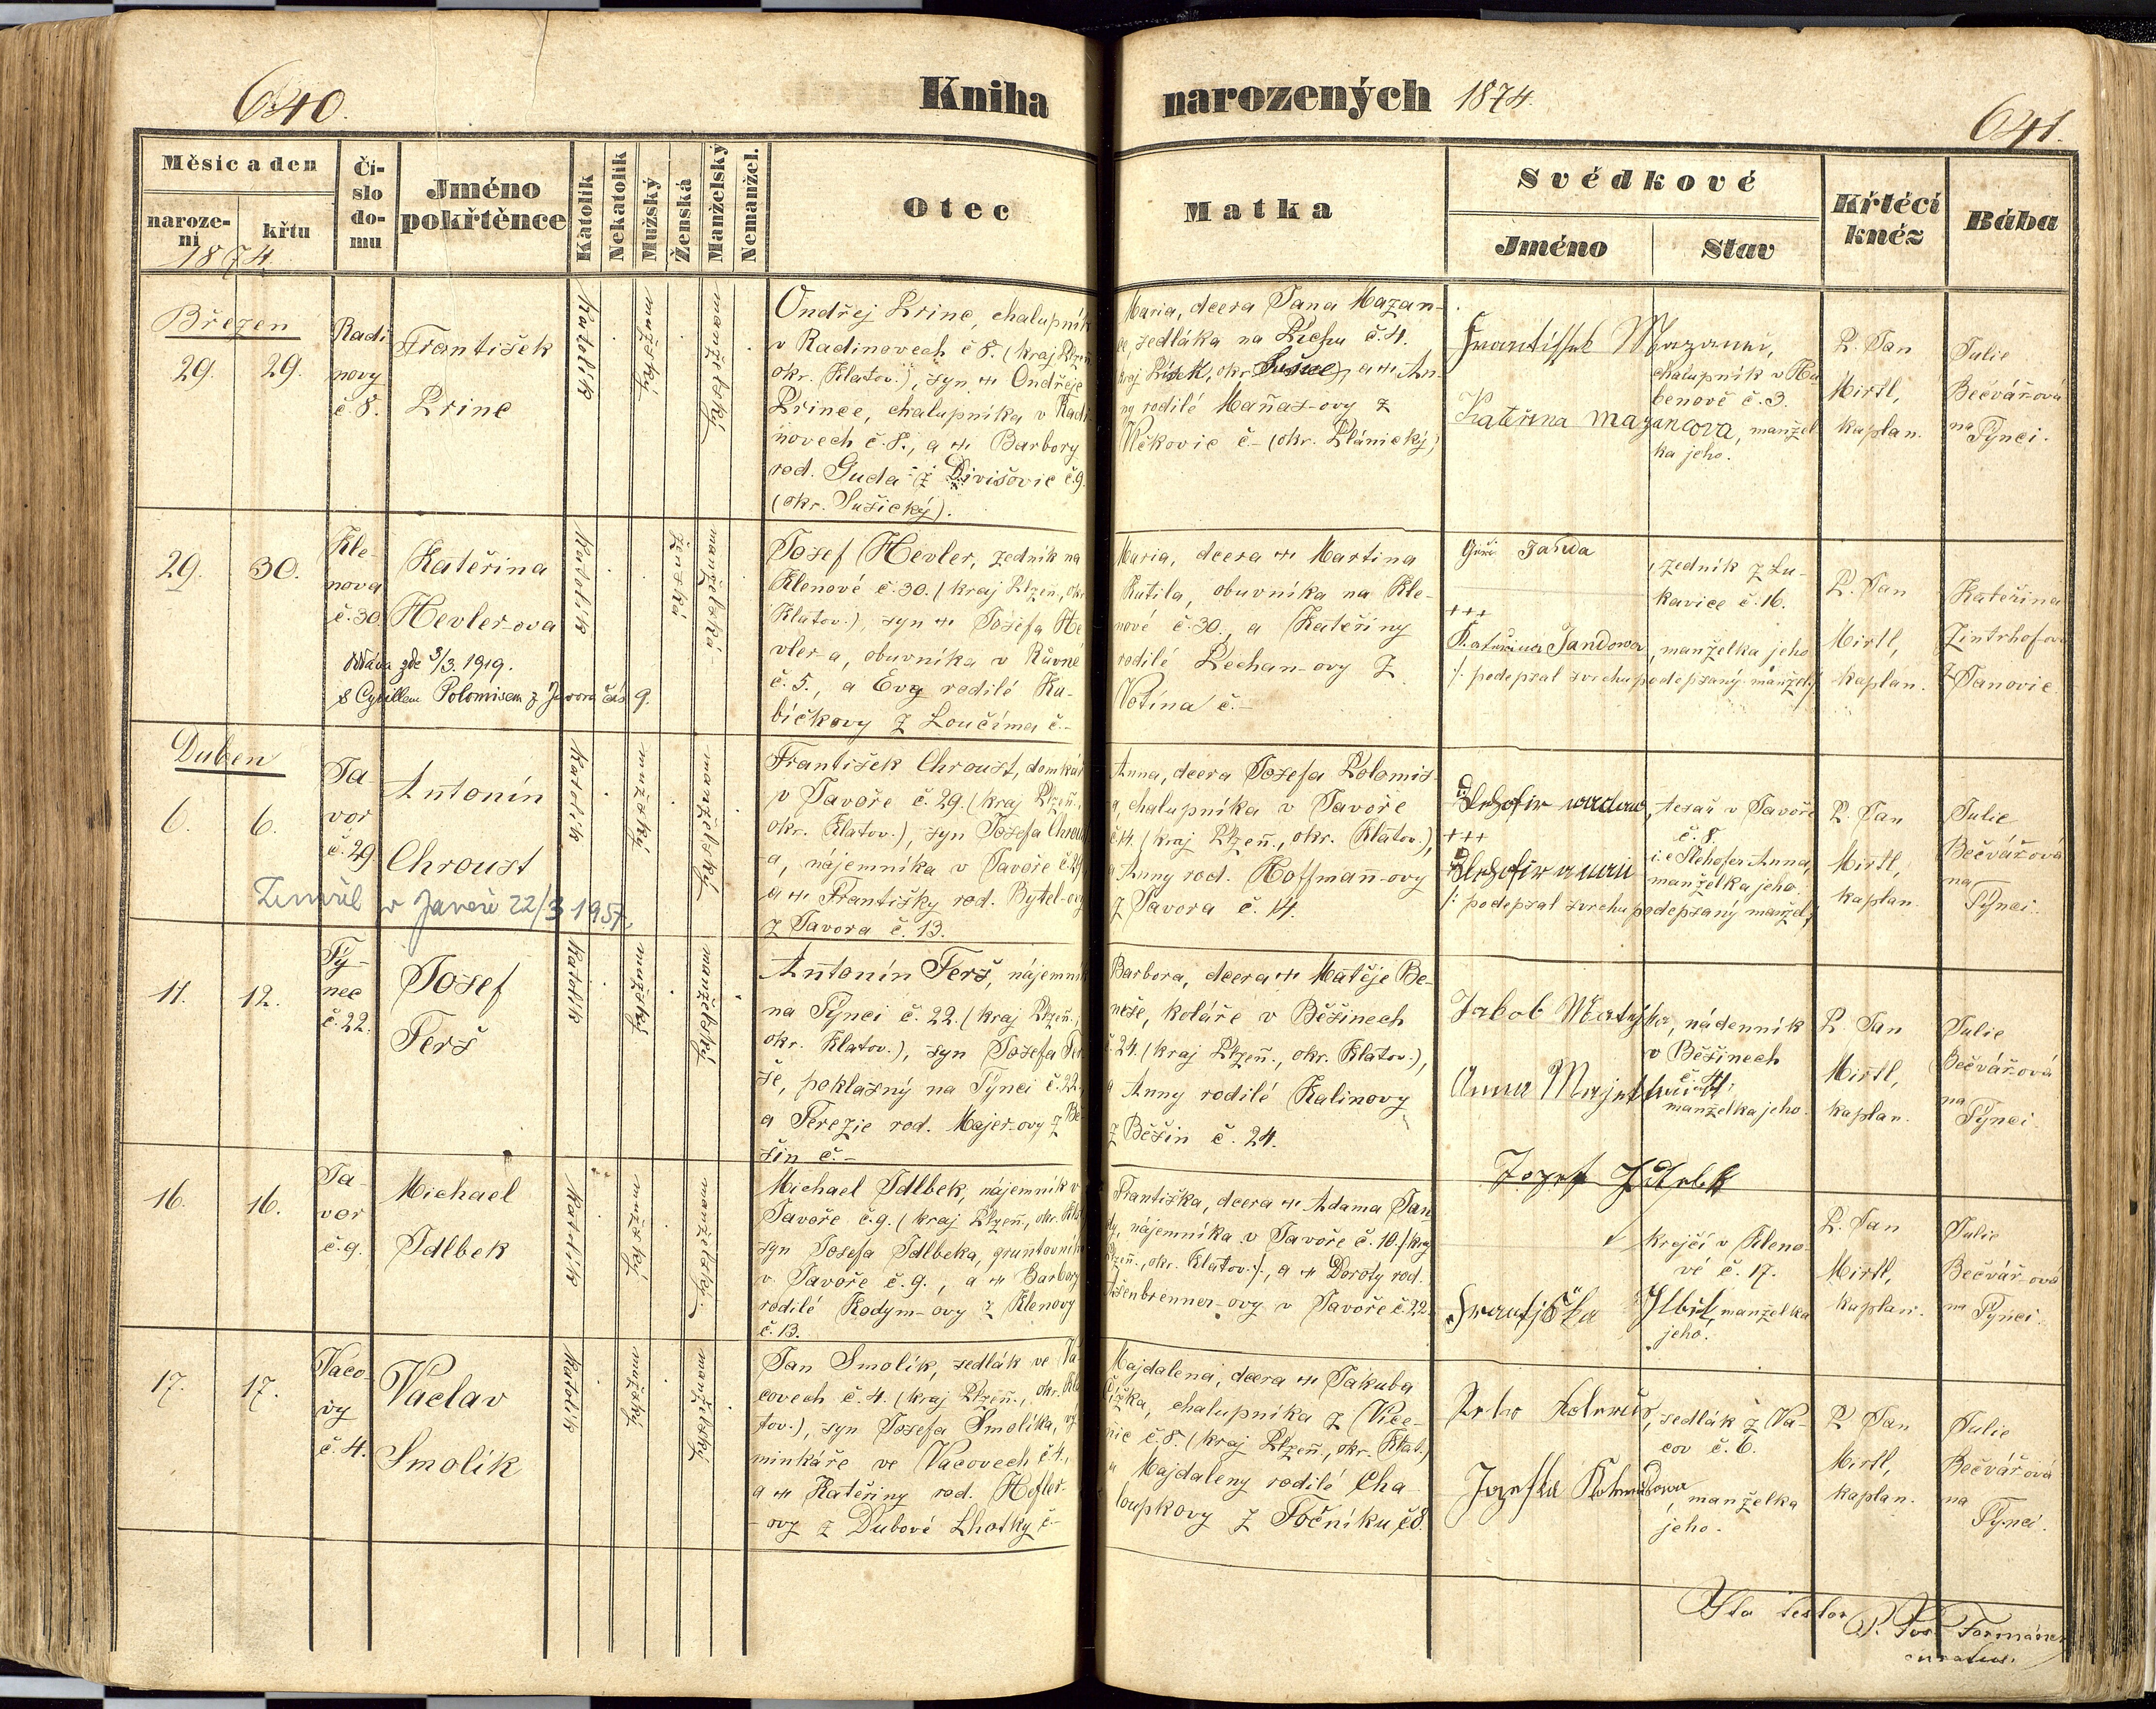 640.
Kniha
narozených 1874.
641.
Měsíc a den
naroze-
ní
křtu
1874.
Čí-
slo
do-
mu
Jméno
pokřtěnce
Katolík
Nekatolík
Mužský
Ženská
Manželský
Nemanžel.
Otec
Matka
Svědkové
Jméno
Stav
Křtěcí
kněz
Bába
Březen
29.
29.
Radi
novy
č. 8.
František
Princ
Katolík
mužský
manželský
Ondřej Princ, chalupník
v Radinovech č 8. (kraj Plzeň
okr. Klatov.), syn Ondřeje
Prince, chalupníka v Radi
novech č. 8., a Barbory
rod. Guda z Divišovic č. 9.
(okr. Sušický).
Maria, dcera Jana Mazan-
ce, sedláka na Lichu č. 4.
kraj Písek, okr. Sušice), a An-
ny rodilé Maňas-ovy z
Vičkovic č - (okr. Plánický)
Mazanec,
chalupník v Hu
benově č. 3.
Kateřina mazancova, manžel
ka jeho.
P. Jan
Mirtl,
kaplan.
Julie
Bečvářová
na
Týnci.
29.
30.
Kle-
nova
č. 30.
Kateřina
Hevler-ova
Oddána zde 3/3. 1919.
s Cyrillem Polomisem z Javora čís 9.
Katolík
ženská
manželská
Josef Hevler, zedník na
Klenové č. 30. (kraj Plzeň., okr
Klatov.), syn Josefa He
vler-a, obuvníka v Růvné
č. 5., a Evy rodilé Ku-
bičkovy z Loučíma č.-
Maria, dcera Martina
Kutila, obuvníka na Kle-
nové č. 30., a Kateřiny
rodilé Pechan-ovy z
Votína č.-
Jiří Janda
, zedník z Lu-
kavice č. 16.
+++
Kateřina Jandowa, manželka jeho
/: podepsal svrchu podepsaný manžel :/
P. Jan
Mirtl,
kaplan.
Kateřina
Zintrhofova
z Janovic.
Duben
6.
6.
Ja
vor
č. 29
Antonín
Chroust
Zemřel v Javoře 22/3 1957.
Katolík
mužský
manželský
František Chroust, domkář
v Javoře č. 29. (kraj Plzeň.,
okr. Klatov.), syn Josefa Chroust
a, nájemníka v Javoře č. 29,
a Františky rod. Bytel-ovy
z Javora č. 13.
Anna, dcera Josefa Polomis-
a, chalupníka v Javoře
č. 14. (kraj Plzeň., okr. Klatov.),
a Anny rod. Hoffmann-ovy
z Javora č. 14.
, tesař v Javoře
č. 8.
+++
i. e Slehofer Anna,
manželka jeho.
/: podepsal svrchu podepsaný manžel :/
P. Jan
Mirtl,
kaplan.
Julie
Bečvářová
na
Týnci.
11.
12.
Tý-
nec
č. 22.
Josef
Terš
Katolík
mužský
manželský
Antonín Terš, nájemník
na Týnci č. 22. (kraj Plzeň.,
okr. Klatov.), syn Josefa Ter
še, poklasný na Týnci č. 22,
a Terezie rod. Majer-ovy z Bě
šin č.-
Barbora, dcera Matěje Be-
neše, koláře v Běšinech
č. 24. (kraj Plzeň., okr. Klatov.),
a Anny rodilé Kalinovy
z Běšin č. 24.
Jakob
, nádenník
v Běšinech
č. 41.
Anna
manželka jeho.
P. Jan
Mirtl,
kaplan.
Julie
Bečvářová
na
Týnci.
16.
16.
Ja-
vor
č. 9.
Michael
Idlbek
Katolík
mužský
manželský
Michael Idlbek, nájemník v
Javoře č. 9. (kraj Plzeň., okr. Klat
syn Josefa Idlbeka, gruntovník
v Javoře č. 9., a Barbory
rodilé Kodym-ovy z Klenovy
č. 13.
Františka, dcera Adama Jan
dy, nájemníka v Javoře č. 10. (kraj
Plzeň., okr. Klatov.), a Doroty rod.
Ašenbrenner-ovy v Javoře č. 22.
Jozef Idlbek
krejčí v Kleno-
vé č. 17.
Františka Idlbek, manželka
jeho.
P. Jan
Mirtl,
kaplan.
Julie
Bečvářová
na
Týnci.
17.
17.
Vaco-
vy
č. 4.
Vaclav
Smolík
Katolík
mužský
manželský
Jan Smolík, sedlák ve Va
covech č. 4. (kraj Plzeň., okr. Kla
tov.), syn Josefa Smolíka, vý
minkáře ve Vacovech č. 4.,
a Kateřiny rod. Hefler-
-ovy z Dubové Lhotky č-
Majdalena, dcera Jakuba
Čížka, chalupníka z Vice-
nic č. 8. (kraj Plzeň., okr. Klat.)
a Majdaleny rodilé Cha-
loupkovy z Točníku, č 8.
, sedlák z Va-
cov č. 6.
Jozefka
, manželka
jeho.
P. Jan
Mirtl,
kaplan.
Julie
Bečvářová
na
Týnci.
Ita testor
P. Jos. Formánek
curatus.